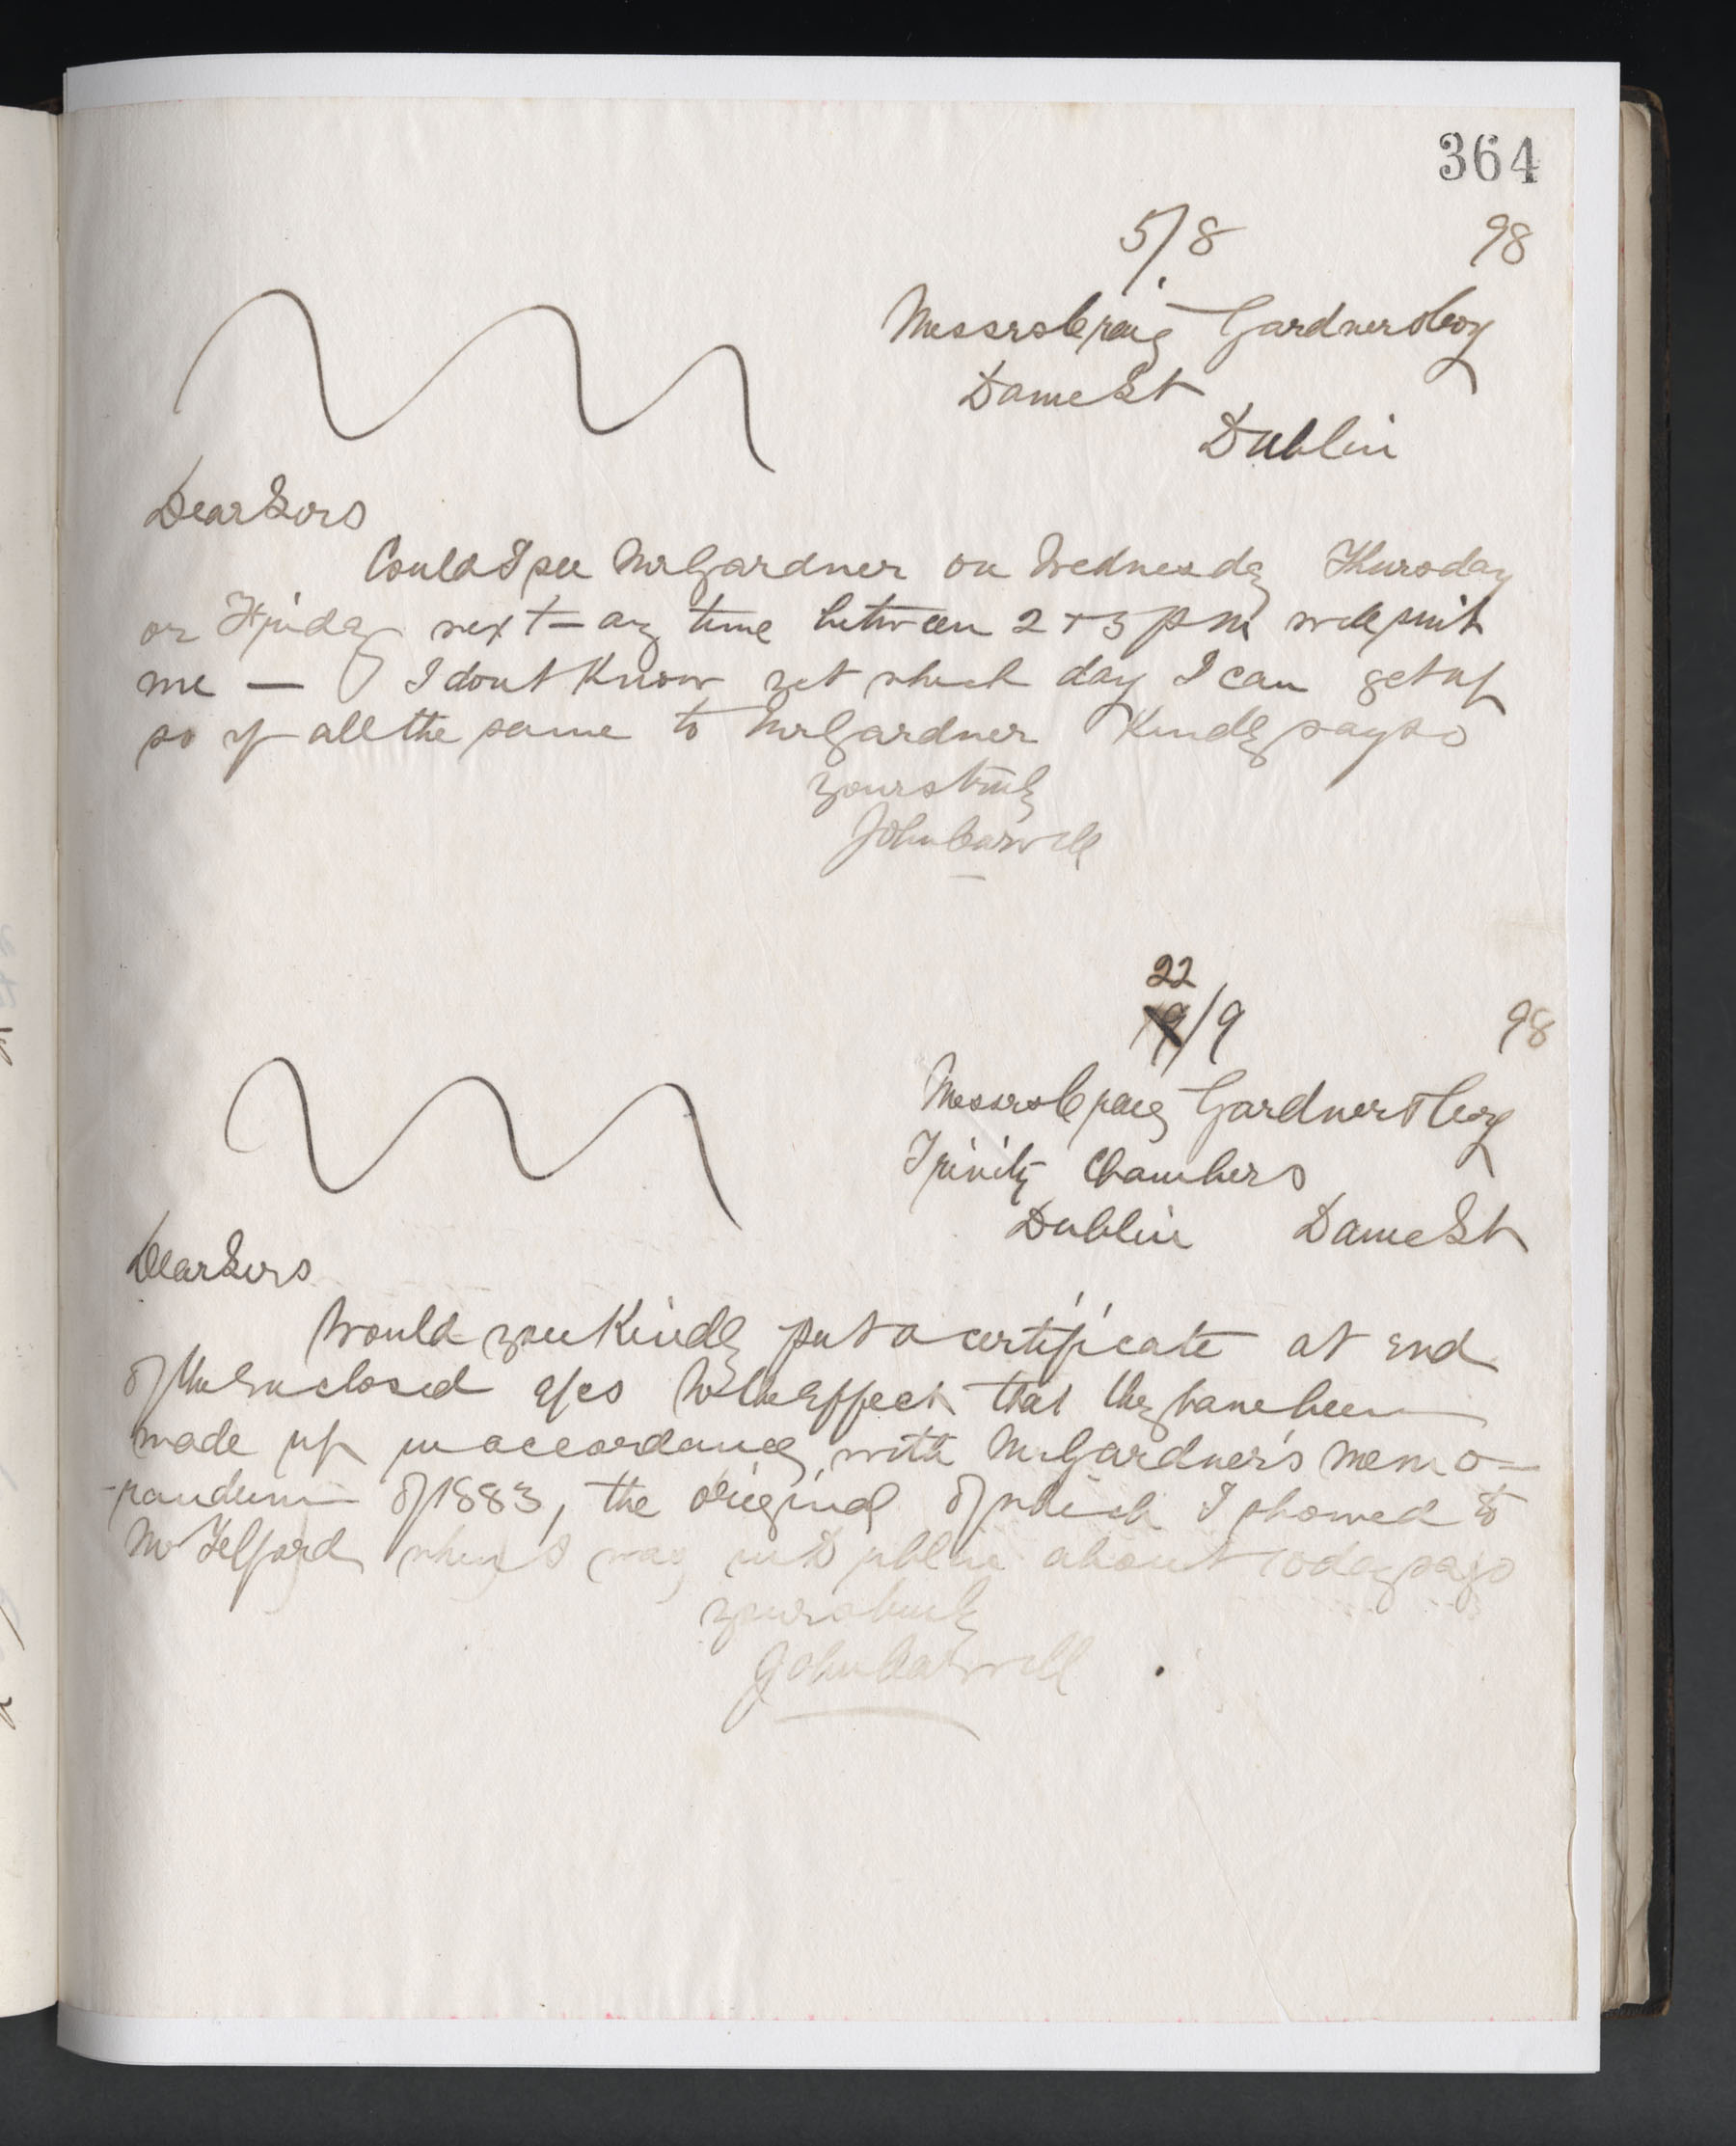 364
5/8 98
Messrs Craig Gardner & Coy
Dame St
Dublin
Dear Sirs
Could I see Mr Gardner on Wednesday Thursday
or Friday next - any time between 2 + 5 pm will suit
me — I dont know yet which day I can get up
so if all the same to Mr Gardner Kindly say so
yours truly
John Carvell
22
19/9 98
Messrs Craig Gardner & Coy
Trinity Chambers
Dublin Dame St
Dear Sirs
Would you Kindly put a certificate at end
of the Enclosed a/cs to the Effect that they have been
made up in accordance, with Mr Gardner's memo-
-randum of 1883, the original of which I showed to
Mr Telford when I was in Dublin about 10 days ago
yours truly
John Carvell